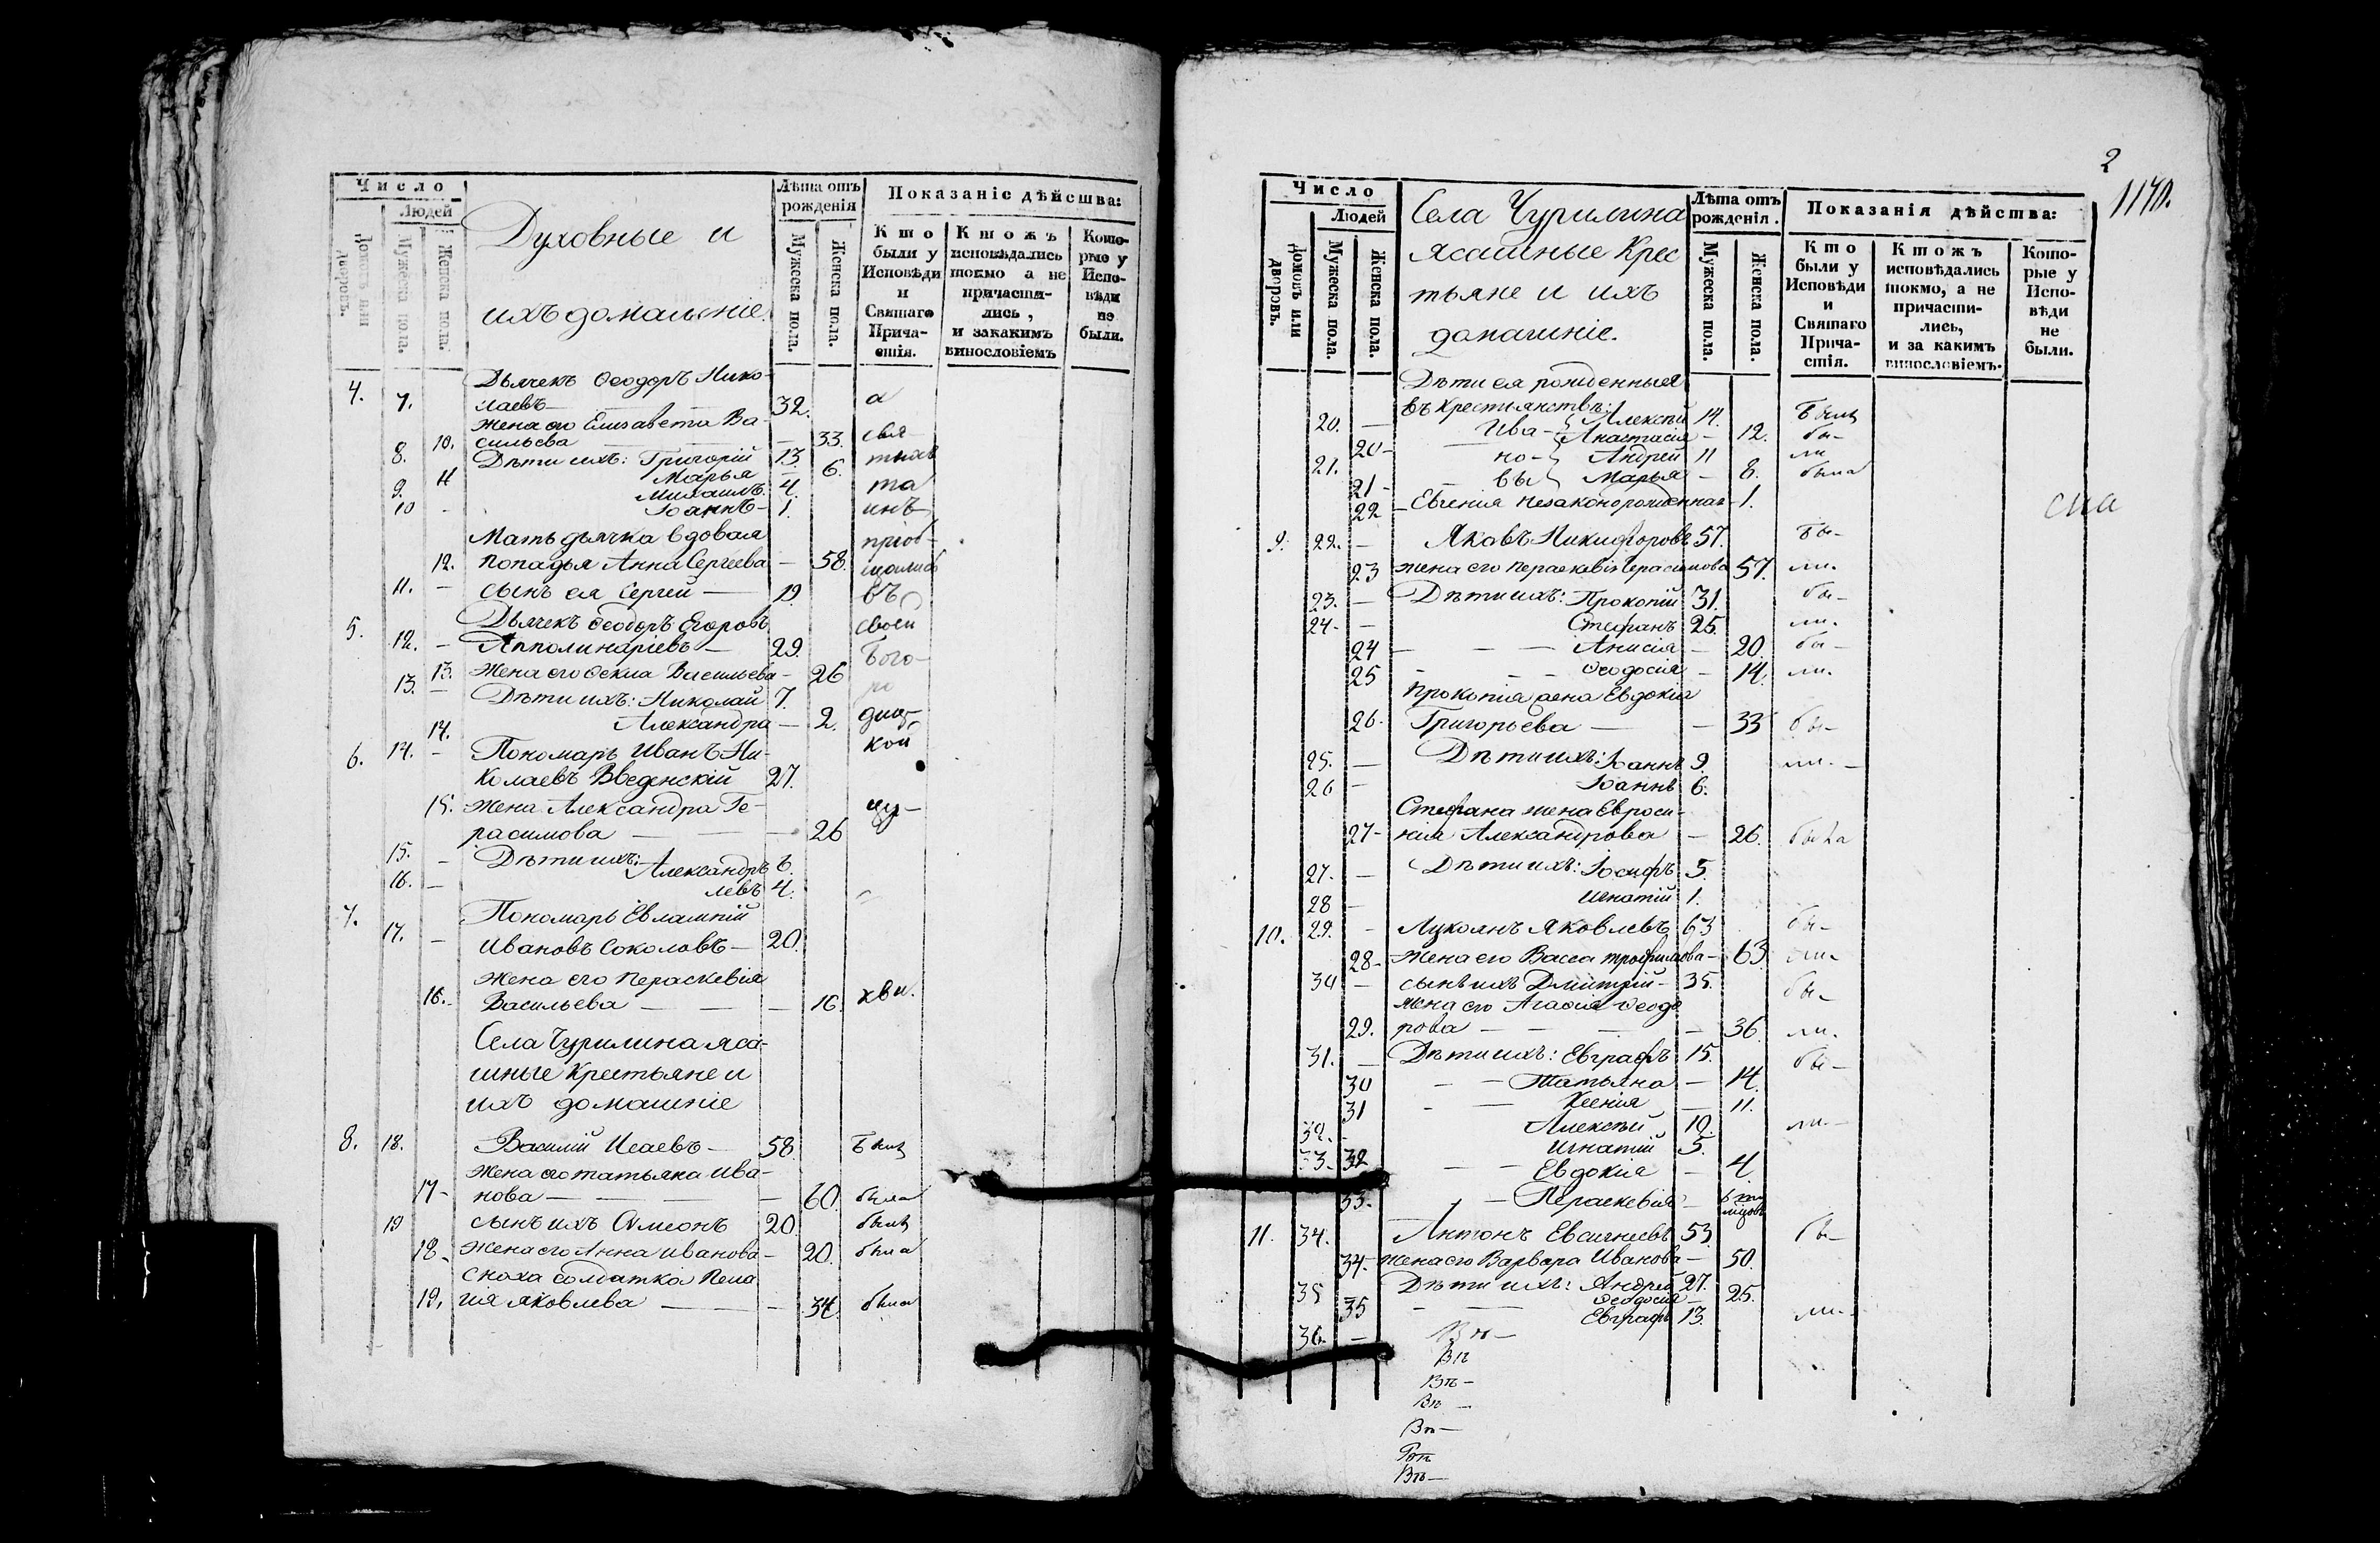 Число
Людей
Домовъ или дворовъ.
Мужеска пола.
Женска пола.
Духовные и
ихъ домашніе.
Лѣта отъ рожденія
Мужеска пола.
Женска пола.
Показаніе дѣйства:
Кто были у Исповѣди и Святаго Причастія.
Ктожъ исповѣдались токмо а не причастились, и закакимъ винословіемъ
Которые у Исповѣди не были.
4. 7. Дьячекъ Ѳеодоръ Нико-
лаевъ — 32.
Жена его Елисавета Ва-
10. сильева — 33. свя-
8. Дѣти ихъ: Григорій 13. тыхъ
11 Марья — 6.
9. Михаилъ 4. та
10 - Іоаннъ — 1. инъ
Мать дьячка вдовая пріоб-
12. попадья Анна Сергѣева — 58. щались
11. — сынъ ея Сергей — 19. въ
5. Дьячекъ Ѳеодоръ Егоровъ своей
12. — Апполинаріевъ — 29. Бого-
13. Жена его Ѳекла Васильева — 26 ро
13. — Дѣти ихъ: Николай 7.
14. Александра — 2. диц-
6. 14. — Пономарь Иванъ Ни- кой
колаевъ Введенскій 27.
15. Жена Александра Ге- цр-
расимова — 26
15. — Дѣти ихъ: Александръ 6.
16. — Левъ 4.
7. Пономарь Евлампій
17. — Ивановъ Соколовъ — 20.
Жена его Пераскевія
16. Васильева — 16. кви.
Села Чурилина яса-
шные Крестьяне и
ихъ домашніе
8. 18. Василій Исаевъ — 58. Былъ
Жена его Татьяна Ива-
17 — нова — 60. была
19 сынъ ихъ Симеонъ 20. былъ
18 — Жена его Анна Иванова — 20. была
сноха солдатка Пела
19. гія Яковлева — 34. была
2
1170.
Число
Людей
Домовъ или дворовъ.
Мужеска пола.
Женска пола.
Села Чурилина
ясашные Крес
тьяне и ихъ
домашніе.
Лѣта отъ рожденія.
Мужеска пола.
Женска пола.
Показанія дѣйства:
Кто были у Исповѣди и Святаго Причастія.
Ктожъ исповѣдались токмо, а не причастились, и за какимъ винословіемъ.
Которые у Исповѣди не были.
Дѣти ея рожденныя
въ крестьянствѣ:
20. — Ива- Алексѣй 14. Былъ
20 — Анастасія — 12. бы-
21. но- Андрей 11 ли
21 — вы Марья — 8. была
22 — Евгенія незаконорожденная — 1.
9. 22. — Яковъ Никифоровъ 57. Бы-
23 Жена его Пераскевія Герасимова 57. ли.
23. — Дѣти ихъ: Прокопій 31. бы-
24 — Стефанъ 25. ли.
24 — Анисія — 20. бы-
25 — Ѳеодосія — 14. ли.
Прокопія жена Евдокія
26. Григорьева — 33 бы-
25. — Дѣти ихъ: Іоаннъ 9. ли.
26 — Іоаннъ 6.
Стефана жена Евроси-
27 — нія Александрова — 26. была
27. — Дѣти ихъ: Іосифъ 5.
28 — Игнатій 1.
10. 29. — Лукоянъ Яковлевъ 63 бы-
28 — Жена его Васса Трофимова — 63. ли.
30 — сынъ ихъ Дмитрій — 35. бы-
Жена его Агафія Ѳеодо
29. рова — 36. ли.
31. — Дѣти ихъ: Евграфъ 15. бы-
30 — Татьяна — 14.
31 — Ксенія — 11.
32. — Алексѣй 10. ли.
33. Игнатій 5.
32 — Евдокия — 4
33. — Пераскевія —
11. 34. Антонъ Евсигнеевъ 53. бы-
34. — Жена его Варвара Иванова — 50.
35 — Дѣти ихъ: Андрей 27.
35 — Ѳеодосія — 25.
36. — Евграфъ 13. ли.